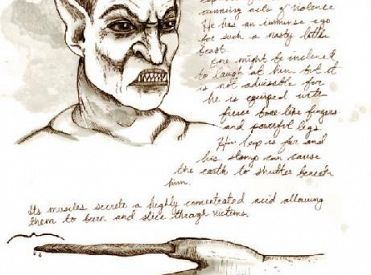 cunning acts of violence.
He has an immense ego
for such a nasty little
beast.
One might be inclined
to laugh at him but it
is not advisable for
he is equiped with
fierce like fingers
and powerful legs.
His leap is far and
his stomp can cause
the earth to shutter beneath
him.
Its muscles secrete a highly concentrated acid allowing
them to burn and slice through victims.